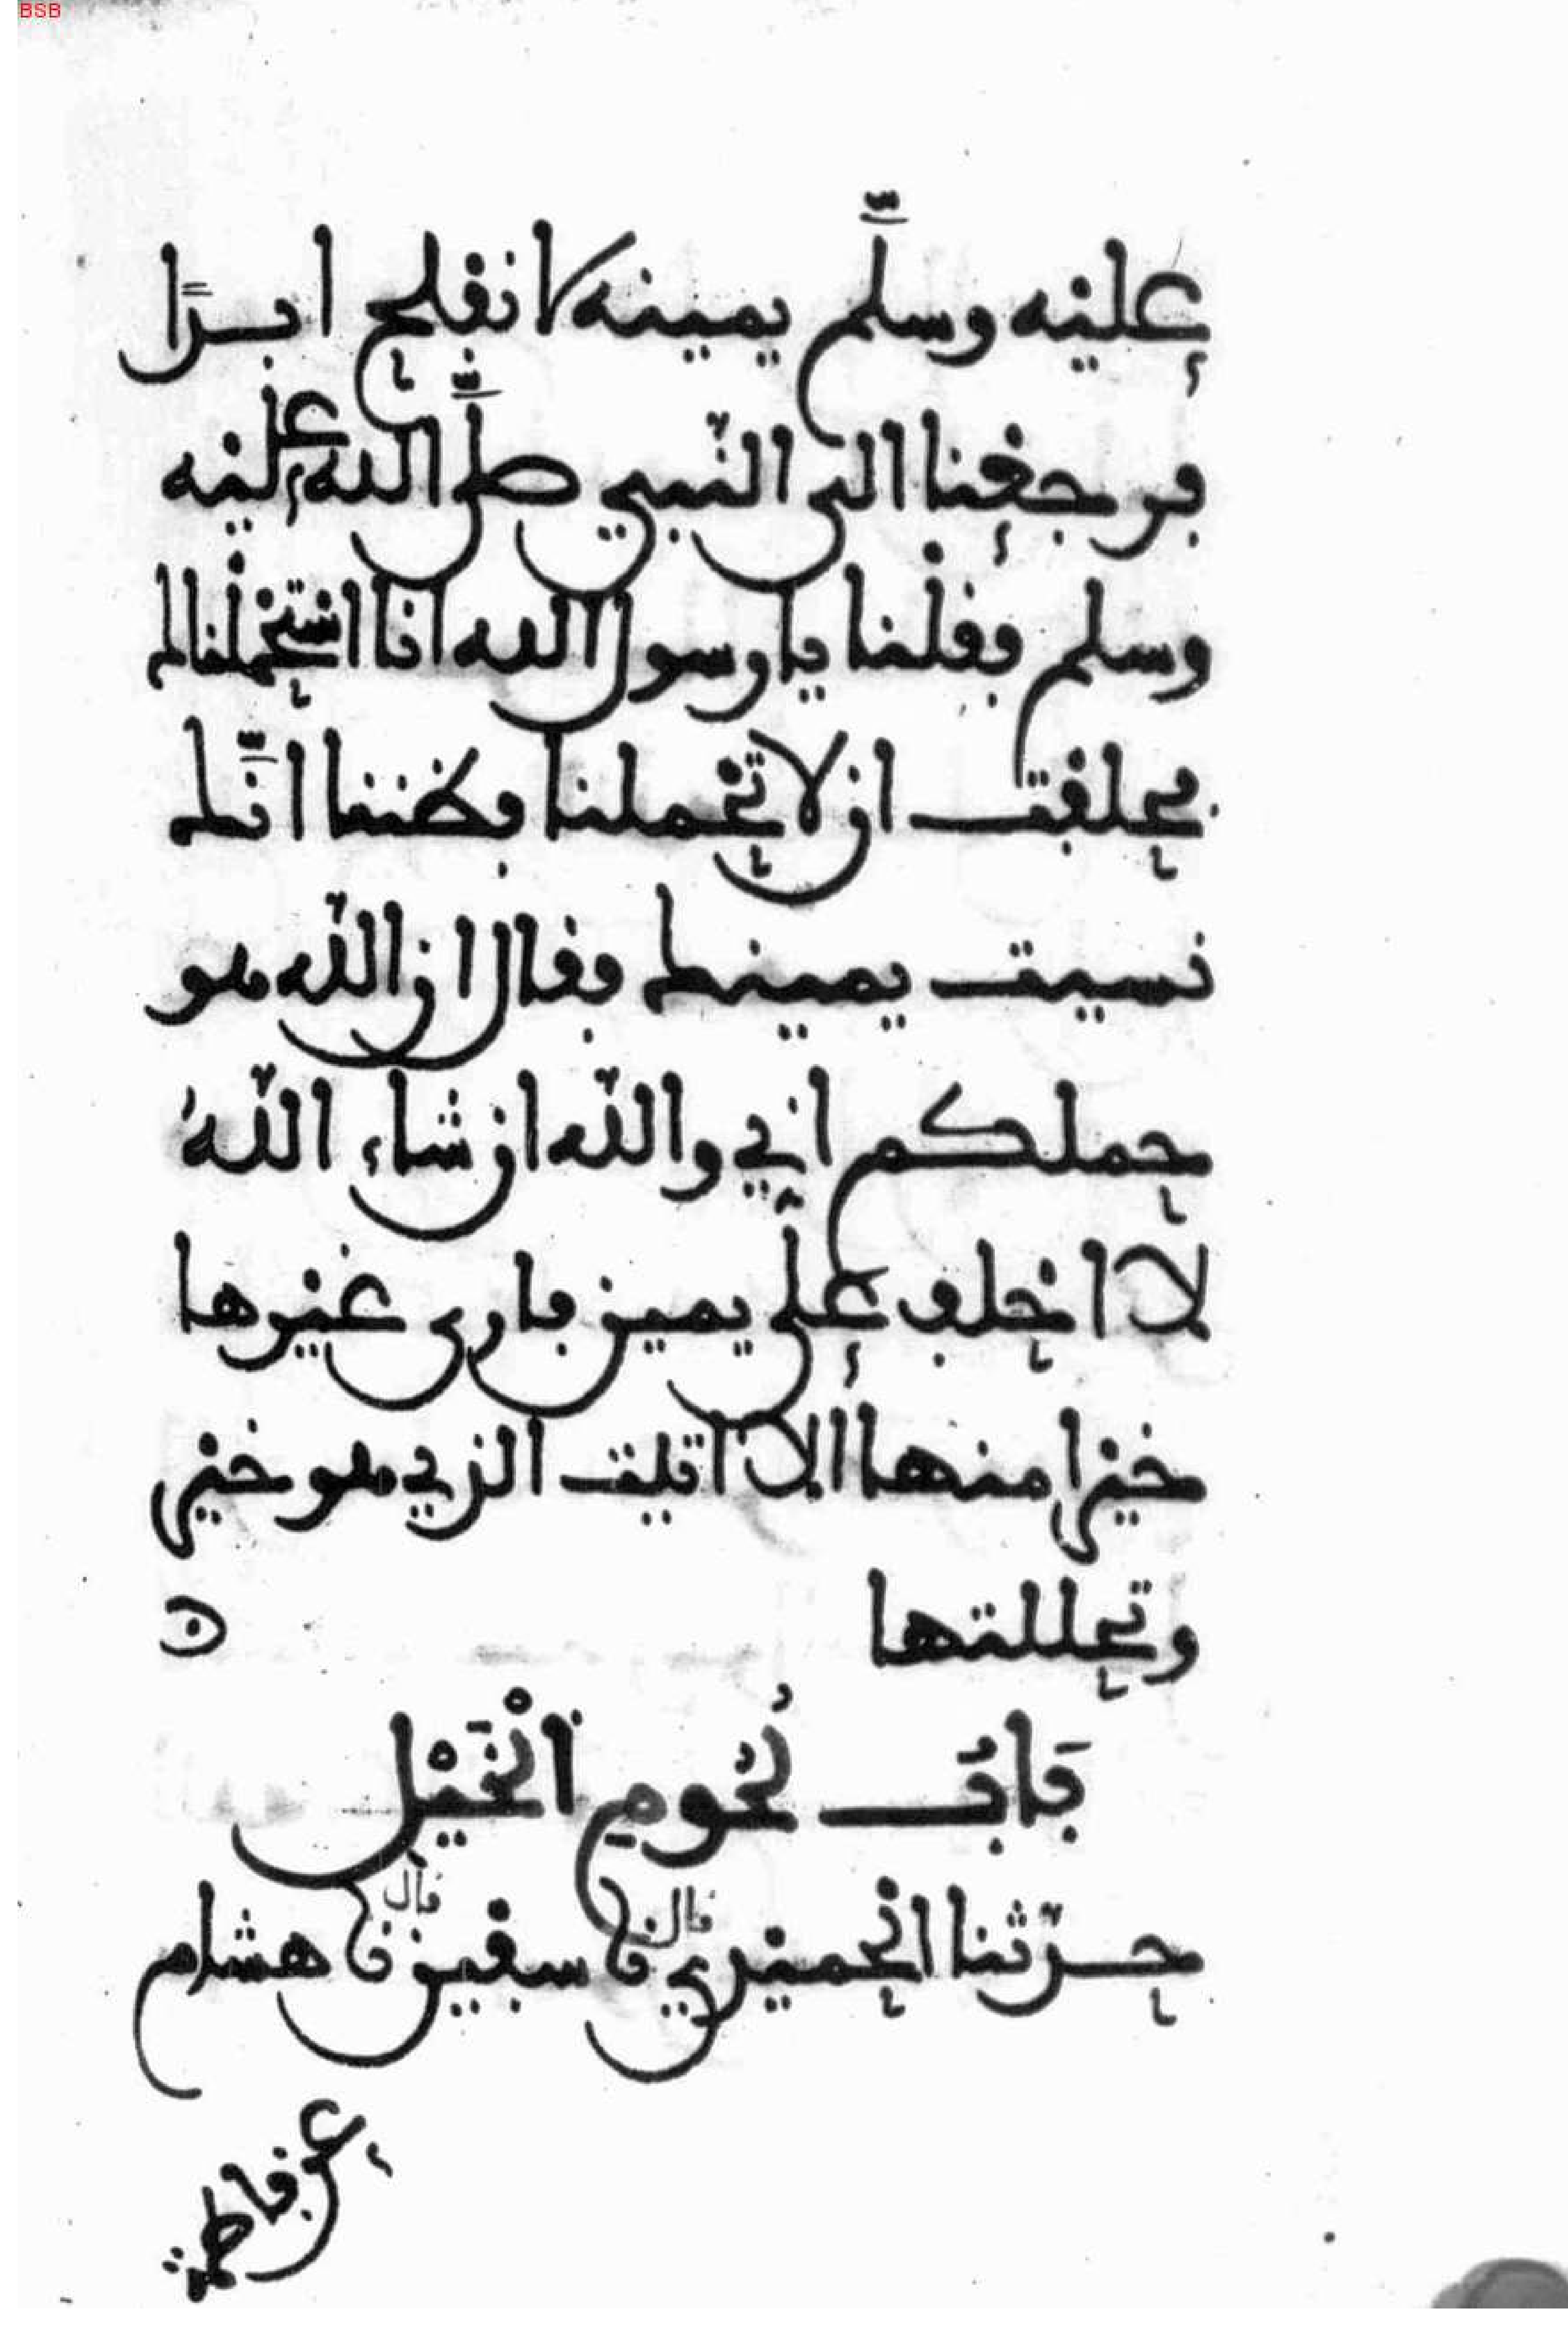 BSB
عليه وسلّم يمينه لا نفلح ابدًا
فرجعنا الى النّبي صلّى الله عليه
وسلم فقلنا يا رسول الله انا استحملنا لم
فحلفت ان لا تحملنا فظننا انّك
نسيت يمينك فقال ان اللّه هو
حملكم اني واللّه ان شاء اللّهُ
لا احلف على يمين فارى غيرها
خيرا منها الا اتيت الذي هو خير
وتحللتها
بَابُ لُحُوم الْخَيْل
حدّثنا الحميدي قال نا سفين قال نا هشام
عن فاطمة